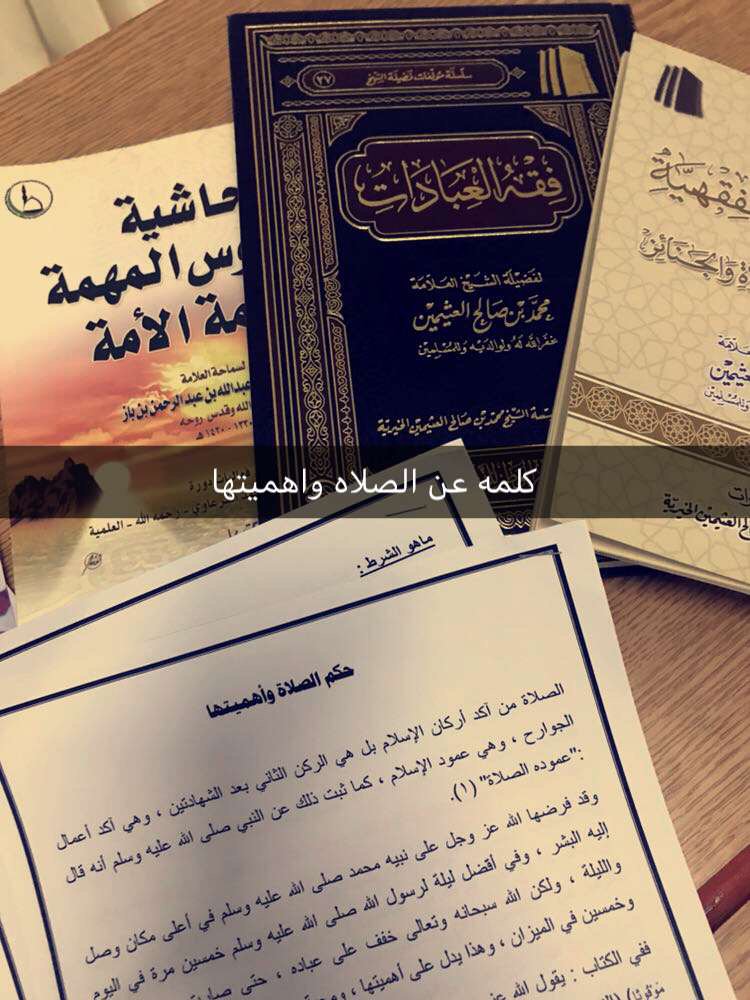 سلسلة مؤلفات فضيلة الشيخ
٣٧
فقه العبادات
لفضيلة الشيخ العلامة
محمد بن صالح العثيمين
غفر الله له ولوالديه وللمسلمين
الشيخ محمد بن صالح العثيمين الخيرية
حاشية
المهمة
الأمة
لسماحة العلامة
عبدالله بن عبدالرحمن بن باز
الله وقدس روحه
١٣٣٠ - ١٤٢٠ هـ
رحمه الله - العلمية
فقهية
والجنائز
العثيمين الخيرية
كلمه عن الصلاه واهميتها
ماهو الشرط :
حكم الصلاة وأهميتها
الصلاة من آكد أركان الإسلام بل هي الركن الثاني بعد الشهادتين ، وهي آكد أعمال
الجوارح ، وهي عمود الإسلام ، كما ثبت ذلك عن النبي صلى الله عليه وسلم أنه قال
:"عموده الصلاة" (١).
وقد فرضها الله عز وجل على نبيه محمد صلى الله عليه وسلم في أعلى مكان وصل
إليه البشر ، وفي أفضل ليلة لرسول الله صلى الله عليه وسلم خمسين مرة في اليوم
والليلة ، ولكن الله سبحانه وتعالى خفف على عباده ، حتى
وخمسين في الميزان ، وهذا يدل على أهميتها ،
ففي الكتاب : يقول الله